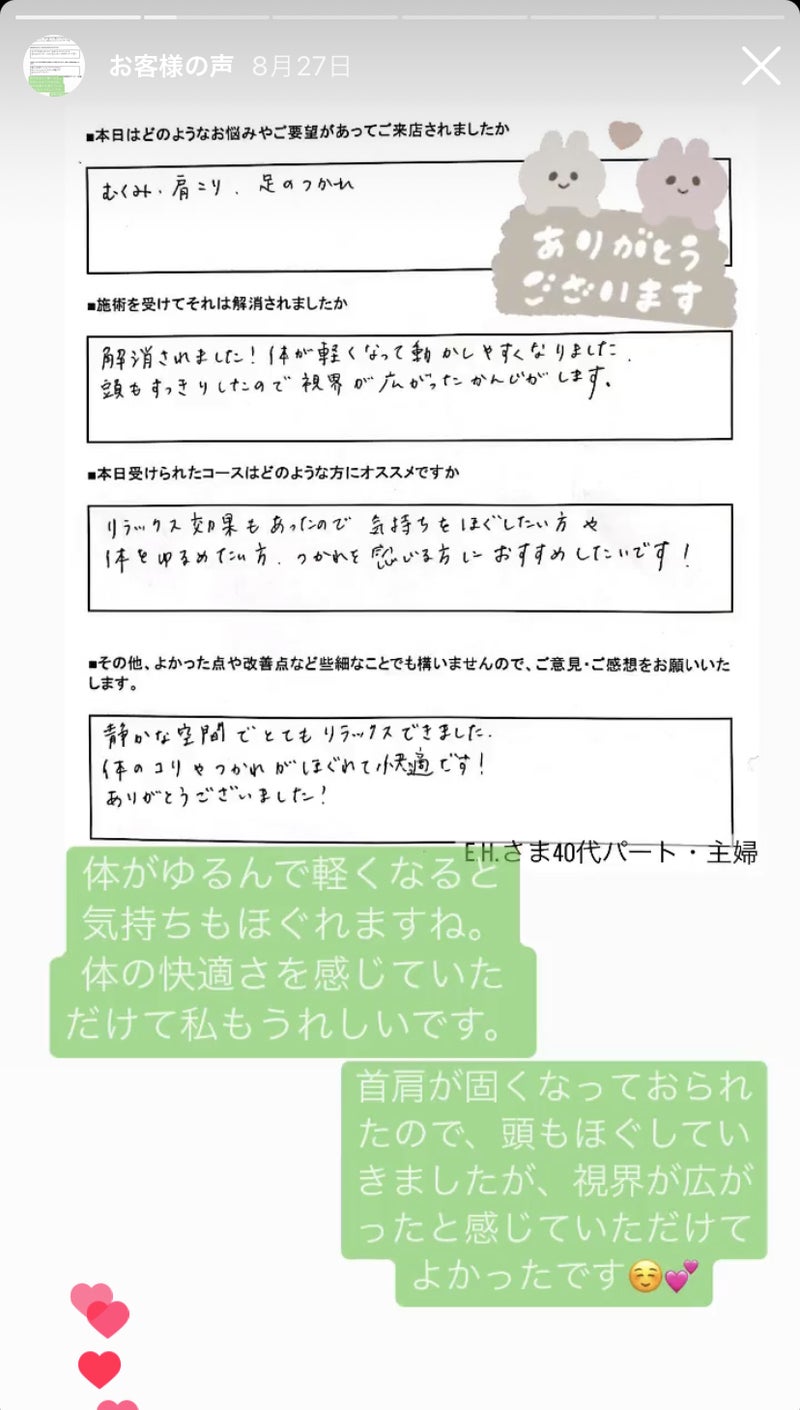 お客様の声 8月27日
■本日はどのようなお悩みやご要望があってご来店されましたか
むくみ・肩こり、足のつかれ
ありがとう
ございます
■施術を受けてそれは解消されましたか
解消されました！体が軽くなって動かしやすくなりました。
頭もすっきりしたので視界が広がったかんじがします。
■本日受けられたコースはどのような方にオススメですか
リラックス効果もあったので気持ちをほぐしたい方や
体をゆるめたい方、つかれを感じる方におすすめしたいです！
■その他、よかった点や改善点など些細なことでも構いませんので、ご意見・ご感想をお願いいた
します。
静かな空間でとてもリラックスできました。
体のコリやつかれがほぐれて快適です！
ありがとうございました！
E.H.さま40代パート・主婦
体がゆるんで軽くなると
気持ちもほぐれますね。
体の快適さを感じていた
だけて私もうれしいです。
首肩が固くなっておられ
たので、頭もほぐしてい
きましたが、視界が広が
ったと感じていただけて
よかったです☺️💕